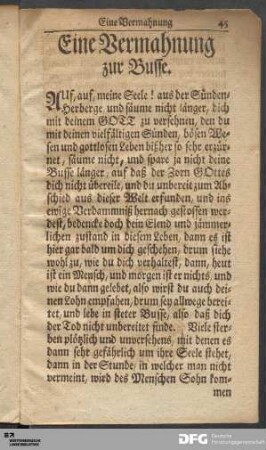 Eine Vermahnung 45
Eine Vermahnung
zur Busse.
AUf, auf, meine Seele! aus der Sünden-
Herberge, und säume nicht länger, dich
mit deinem GOTT zu versehnen, den du
mit deinen vielfältigen Sünden, bösen We-
sen und gottlosen Leben bißher so sehr erzür-
net, säume nicht, und spare ja nicht deine
Busse länger, auf daß der Zorn GOttes
dich nicht übereile, und du unbereit zum Ab-
schied aus dieser Welt erfunden, und ins
ewige Verdammniß hernach gestossen wer-
dest, bedencke doch dein Elend und jämmer-
lichen zustand in diesem Leben, dann es ist
hier gar bald um dich geschehen, drum siehe
wohl zu, wie du dich verhaltest, dann, heut
ist ein Mensch, und morgen ist er nichts, und
wie du dann gelebet, also wirst du auch dei-
nen Lohn empfahen, drum sey allwege berei-
tet, und lebe in steter Busse, also daß dich
der Tod nicht unbereitet finde. Viele ster-
ben plötzlich und unversehens, mit denen es
dann sehr gefährlich um ihre Seele stehet,
dann in der Stunde, in welcher man nicht
vermeint, wird des Menschen Sohn kom-
men
DFG Deutsche
Forschungsgemeinschaft